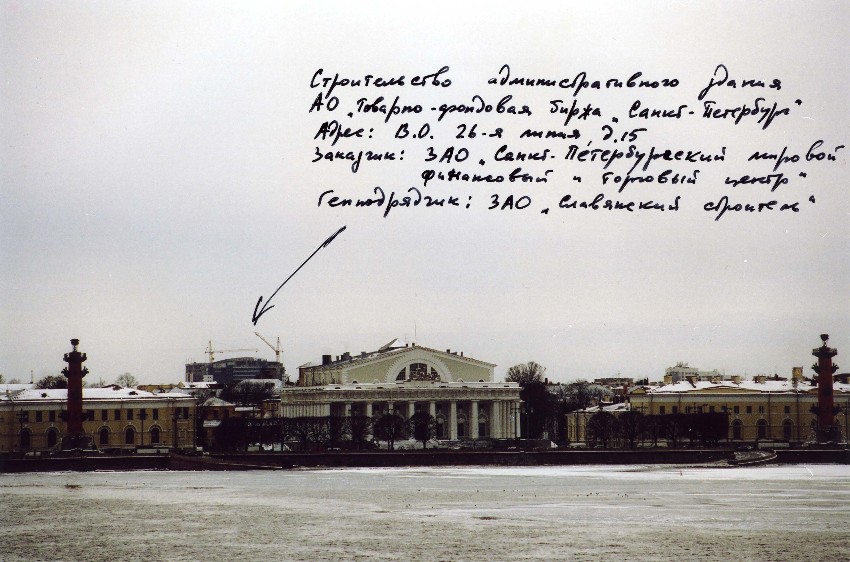 Строительство административного здания
АО "Товарно-фондовая биржа "Санкт-Петербург"
Адрес: В.О. 26-я линия д.15
Заказчик: ЗАО "Санкт-Петербургский мировой
финансовый и торговый центр"
Генподрядчик: ЗАО "Славянский строитель"